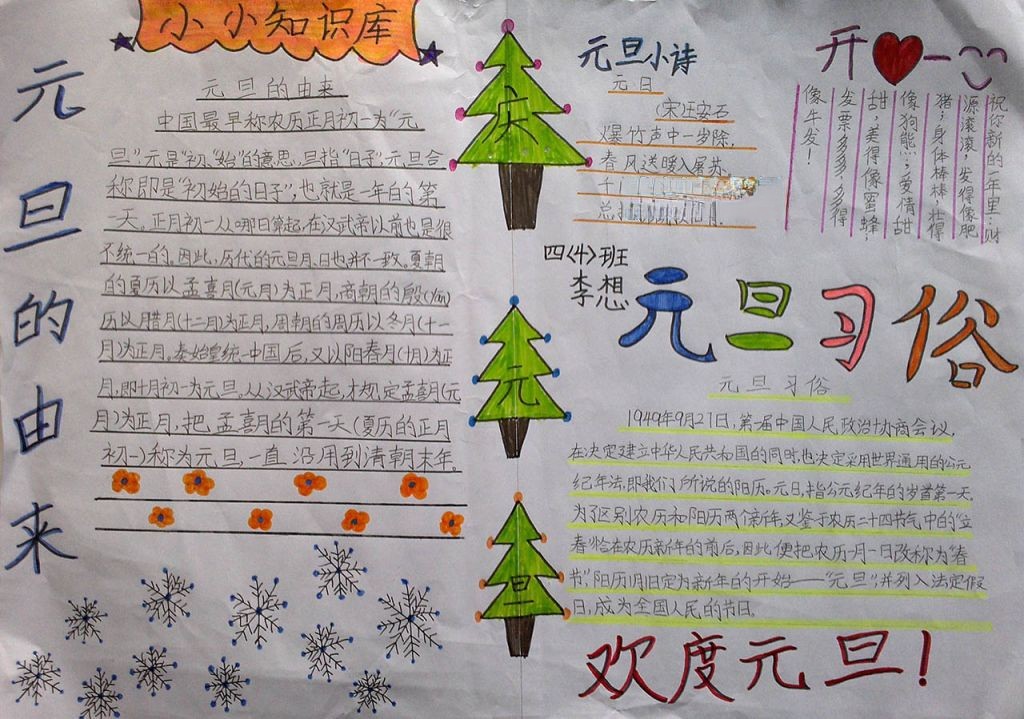 小小知识库
元旦的由来
元旦的由来
中国最早称农历正月初一为“元
旦”元是“初”“始”的意思,旦指“日子”,元旦合
称即是“初始的日子”,也就是一年的第
一天。正月初一从哪日算起,在汉武帝以前也是很
不统一的。因此,历代的元旦月、日也并不一致。夏朝
的夏历以孟喜月(元月)为正月,商朝的殷(yīn)
历以腊月(十二月)为正月,周朝的周历以冬月(十一
月)为正月。秦始皇统一中国后,又以阳春月(十月)为正
月,即十月初一为元旦。从汉武帝起,才规定孟喜月(元
月)为正月,把孟喜月的第一天(夏历的正月
初一)称为元旦,一直沿用到清朝末年。
庆
元
旦
元旦小诗
元日
(宋)王安石
爆竹声中一岁除,
春风送暖入屠苏。
千
总
开一
祝你新的一年里:财
源滚滚,发得像肥
猪;身体棒棒,壮得
像狗熊;爱情甜
甜,美得像蜜蜂;
发票多多,多得
像牛发!
四〈4〉班
李想
元旦习俗
元旦习俗
1949年9月27日,第一届中国人民政治协商会议,
在决定建立中华人民共和国的同时,也决定采用世界通用的公元
纪年法,即我们所说的阳历。元旦,指公元纪年的岁首第一天。
为了区别农历和阳历两个新年,又鉴于农历二十四节气中的“立
春”恰在农历新年的前后,因此便把农历一月一日改称为“春
节”,阳历1月1日定为新年的开始——“元旦”,并列入法定假
日,成为全国人民的节日.
欢度元旦!